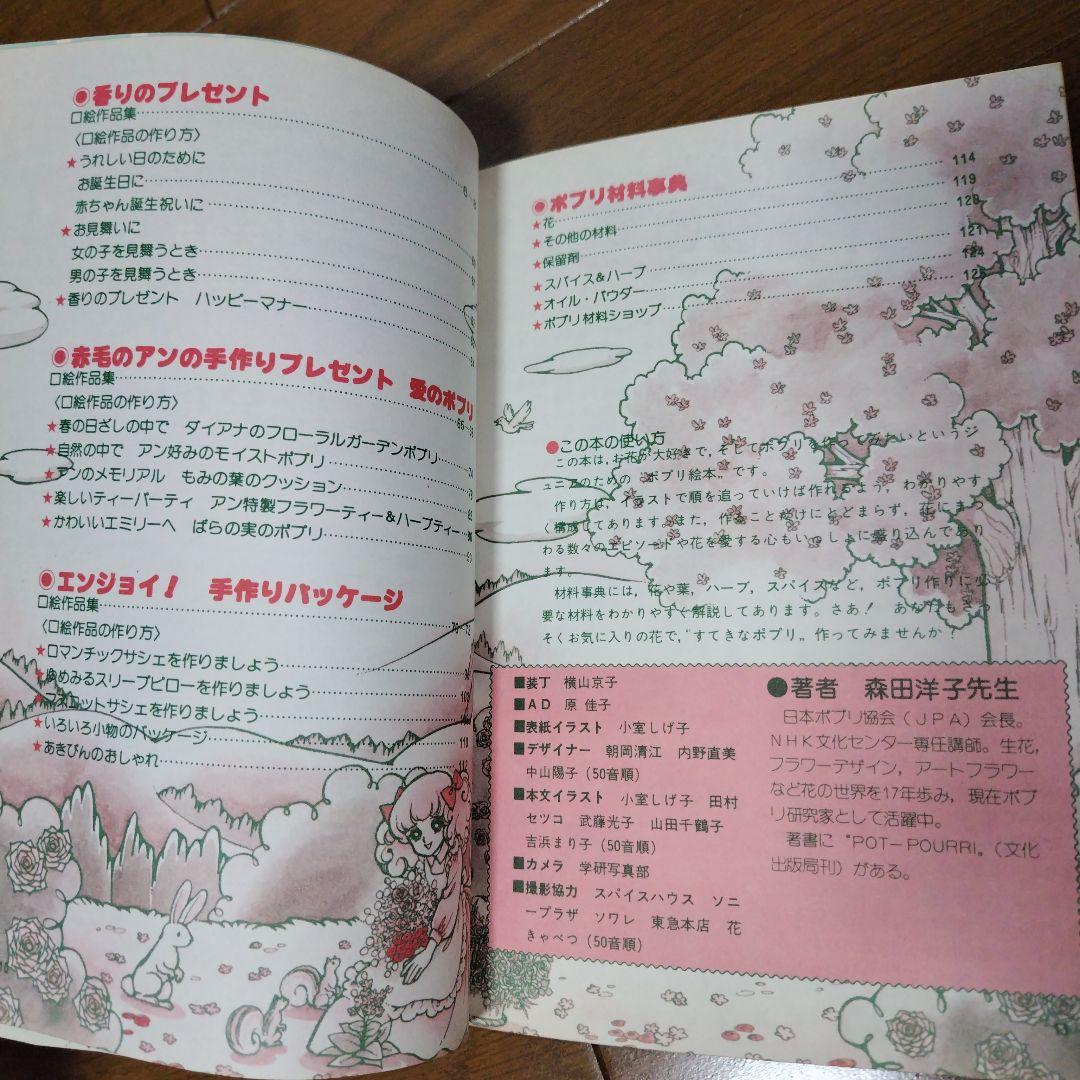 ◉香りのプレゼント
口絵作品集
〈口絵作品の作り方〉
★うれしい日のために
お誕生日に
赤ちゃん誕生祝いに
★お見舞いに
女の子を見舞うとき
男の子を見舞うとき
★香りのプレゼント ハッピーマナー
◉赤毛のアンの手作りプレゼント 愛のポプリ
口絵作品集
〈口絵作品の作り方〉
★春の日ざしの中で ダイアナのフローラルガーデンポプリ
★自然の中で アン好みのモイストポプリ
★アンのメモリアル もみの葉のクッション
★楽しいティーパーティ アン特製フラワーティー&ハーブティー
★かわいいエミリーへ ばらの実のポプリ
◉エンジョイ! 手作りパッケージ
口絵作品集
〈口絵作品の作り方〉
★ロマンチックサシェを作りましょう
★ゆめみるスリープピローを作りましょう
サシェを作りましょう
★いろいろ小物のパッケージ
★あきびんのおしゃれ
◉ポプリ材料事典
★花 114
★その他の材料 119
★保留剤 120
★スパイス&ハーブ 121
★オイル・パウダー 124
★ポプリ材料ショップ
●この本の使い方
この本は、お花が大好きで、そしてポプリを作ってみたいというジ
ュニアのための“ポプリ絵本”です。
作り方は、イラストで順を追っていけば作れるよう、わかりやす
く構成してあります。また、作ることだけにとどまらず、花にまつ
わる数々のエピソードや花を愛する心もいっしょに盛り込んであり
ます。
材料事典には、花や葉、ハーブ、スパイスなど、ポプリ作りに必
要な材料をわかりやすく解説してあります。さあ! あなたもさっ
そくお気に入りの花で、“すてきなポプリ„ 作ってみませんか?
■装丁 横山京子
■AD 原 佳子
■表紙イラスト 小室しげ子
■デザイナー 朝岡清江 内野直美
中山陽子(50音順)
■本文イラスト 小室しげ子 田村
セツコ 武藤光子 山田千鶴子
吉浜まり子(50音順)
■カメラ 学研写真部
■撮影協力 スパイスハウス ソニ
ープラザ ソワレ 東急本店 花
きゃべつ(50音順)
●著者 森田洋子先生
日本ポプリ協会(JPA)会長。
NHK文化センター専任講師。生花,
フラワーデザイン,アートフラワー
など花の世界を17年歩み,現在ポプ
リ研究家として活躍中。
著書に“POT-POURRI„(文化
出版局刊)がある。